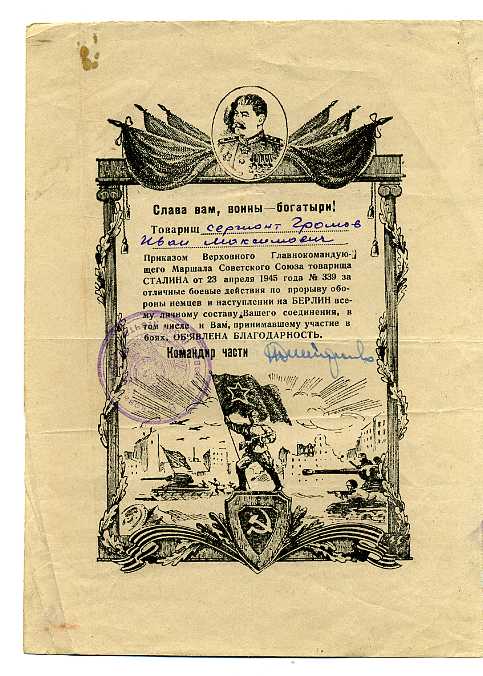 Слава вам, воины—богатыри!
Товарищ сержант Громов
Иван Максимович
Приказом Верховного Главнокомандую-
щего Маршала Советского Союза товарища
СТАЛИНА от 23 апреля 1945 года № 339 за
отличные боевые действия по прорыву обо-
роны немцев и наступлении на БЕРЛИН все-
му личному составу Вашего соединения, в
том числе и Вам, принимавшему участие в
боях, ОБ'ЯВЛЕНА БЛАГОДАРНОСТЬ.
Командир части